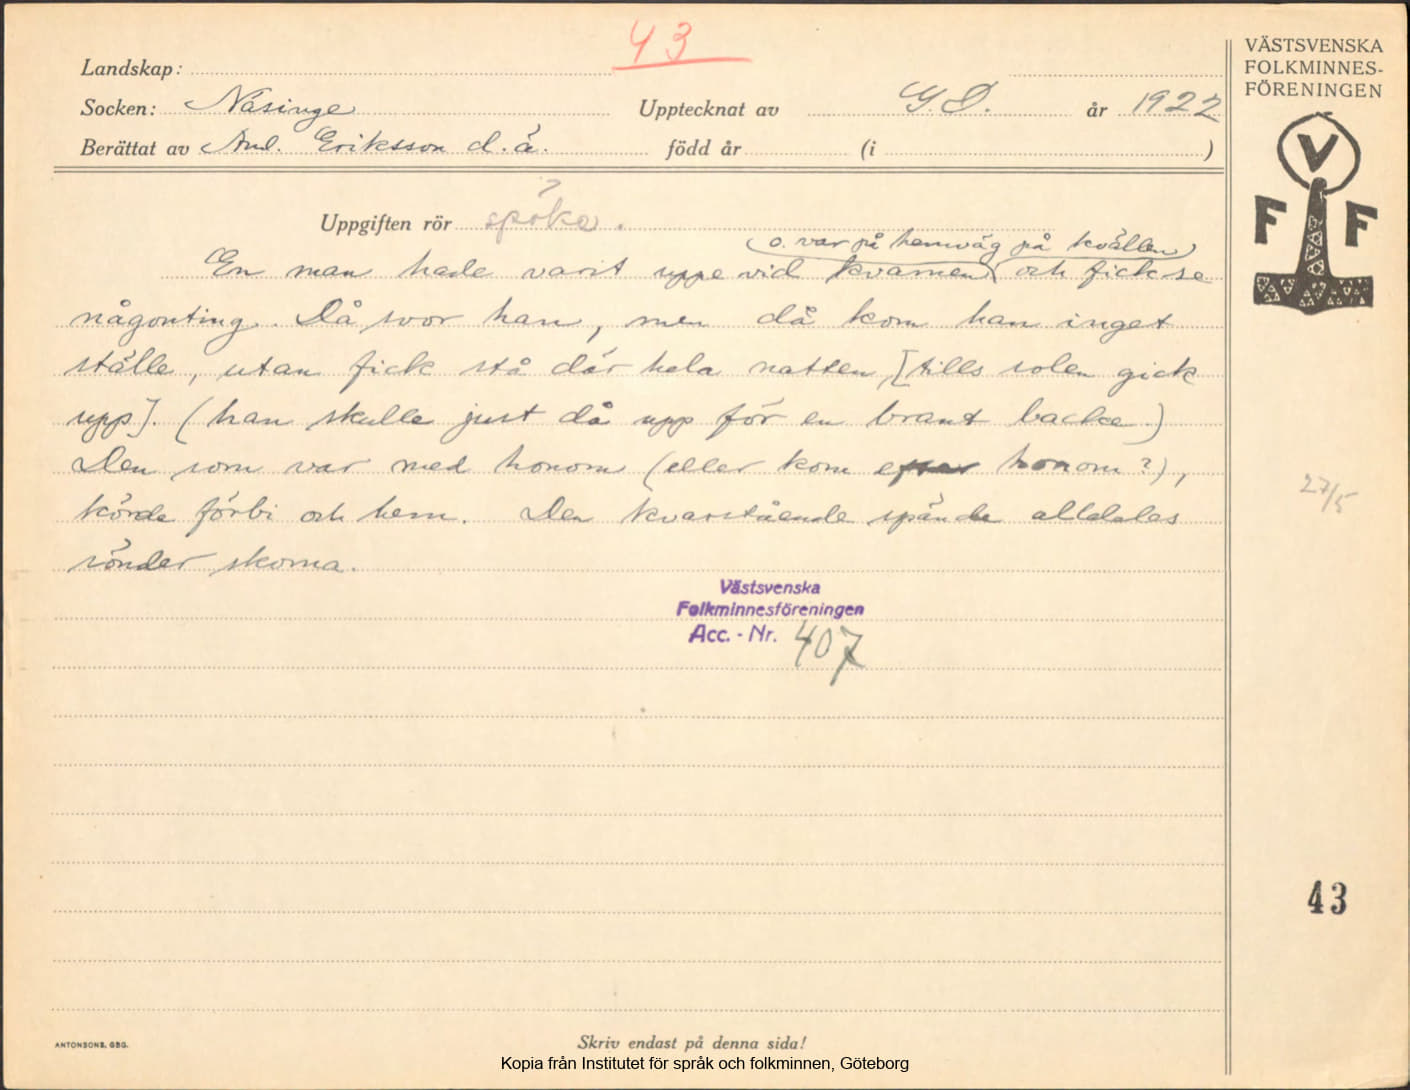 43
VÄSTSVENSKA
FOLKMINNES-
FÖRENINGEN
Landskap:
Socken: Näsinge Upptecknat av G.D. år 1922
Berättat av And. Eriksson d.ä. född år (i )
V
F F
Uppgiften rör spöke.
o. var på hemväg på kvällen
En man hade varit uppe vid kvarnen och fick se
någonting. Då svor han, men då kom han inget
ställe, utan fick stå där hela natten, [tills solen gick
upp]. (han skulle just då upp för en brant backe.)
Den som var med honom (eller kom efter honom?),
körde förbi och hem. Den kvarstående spände alldeles
sönder skorna.
27/5
Västsvenska
Folkminnesföreningen
Acc. - Nr. 407
43
ANTONSONS, GBG.
Skriv endast på denna sida!
Kopia från Institutet för språk och folkminnen, Göteborg